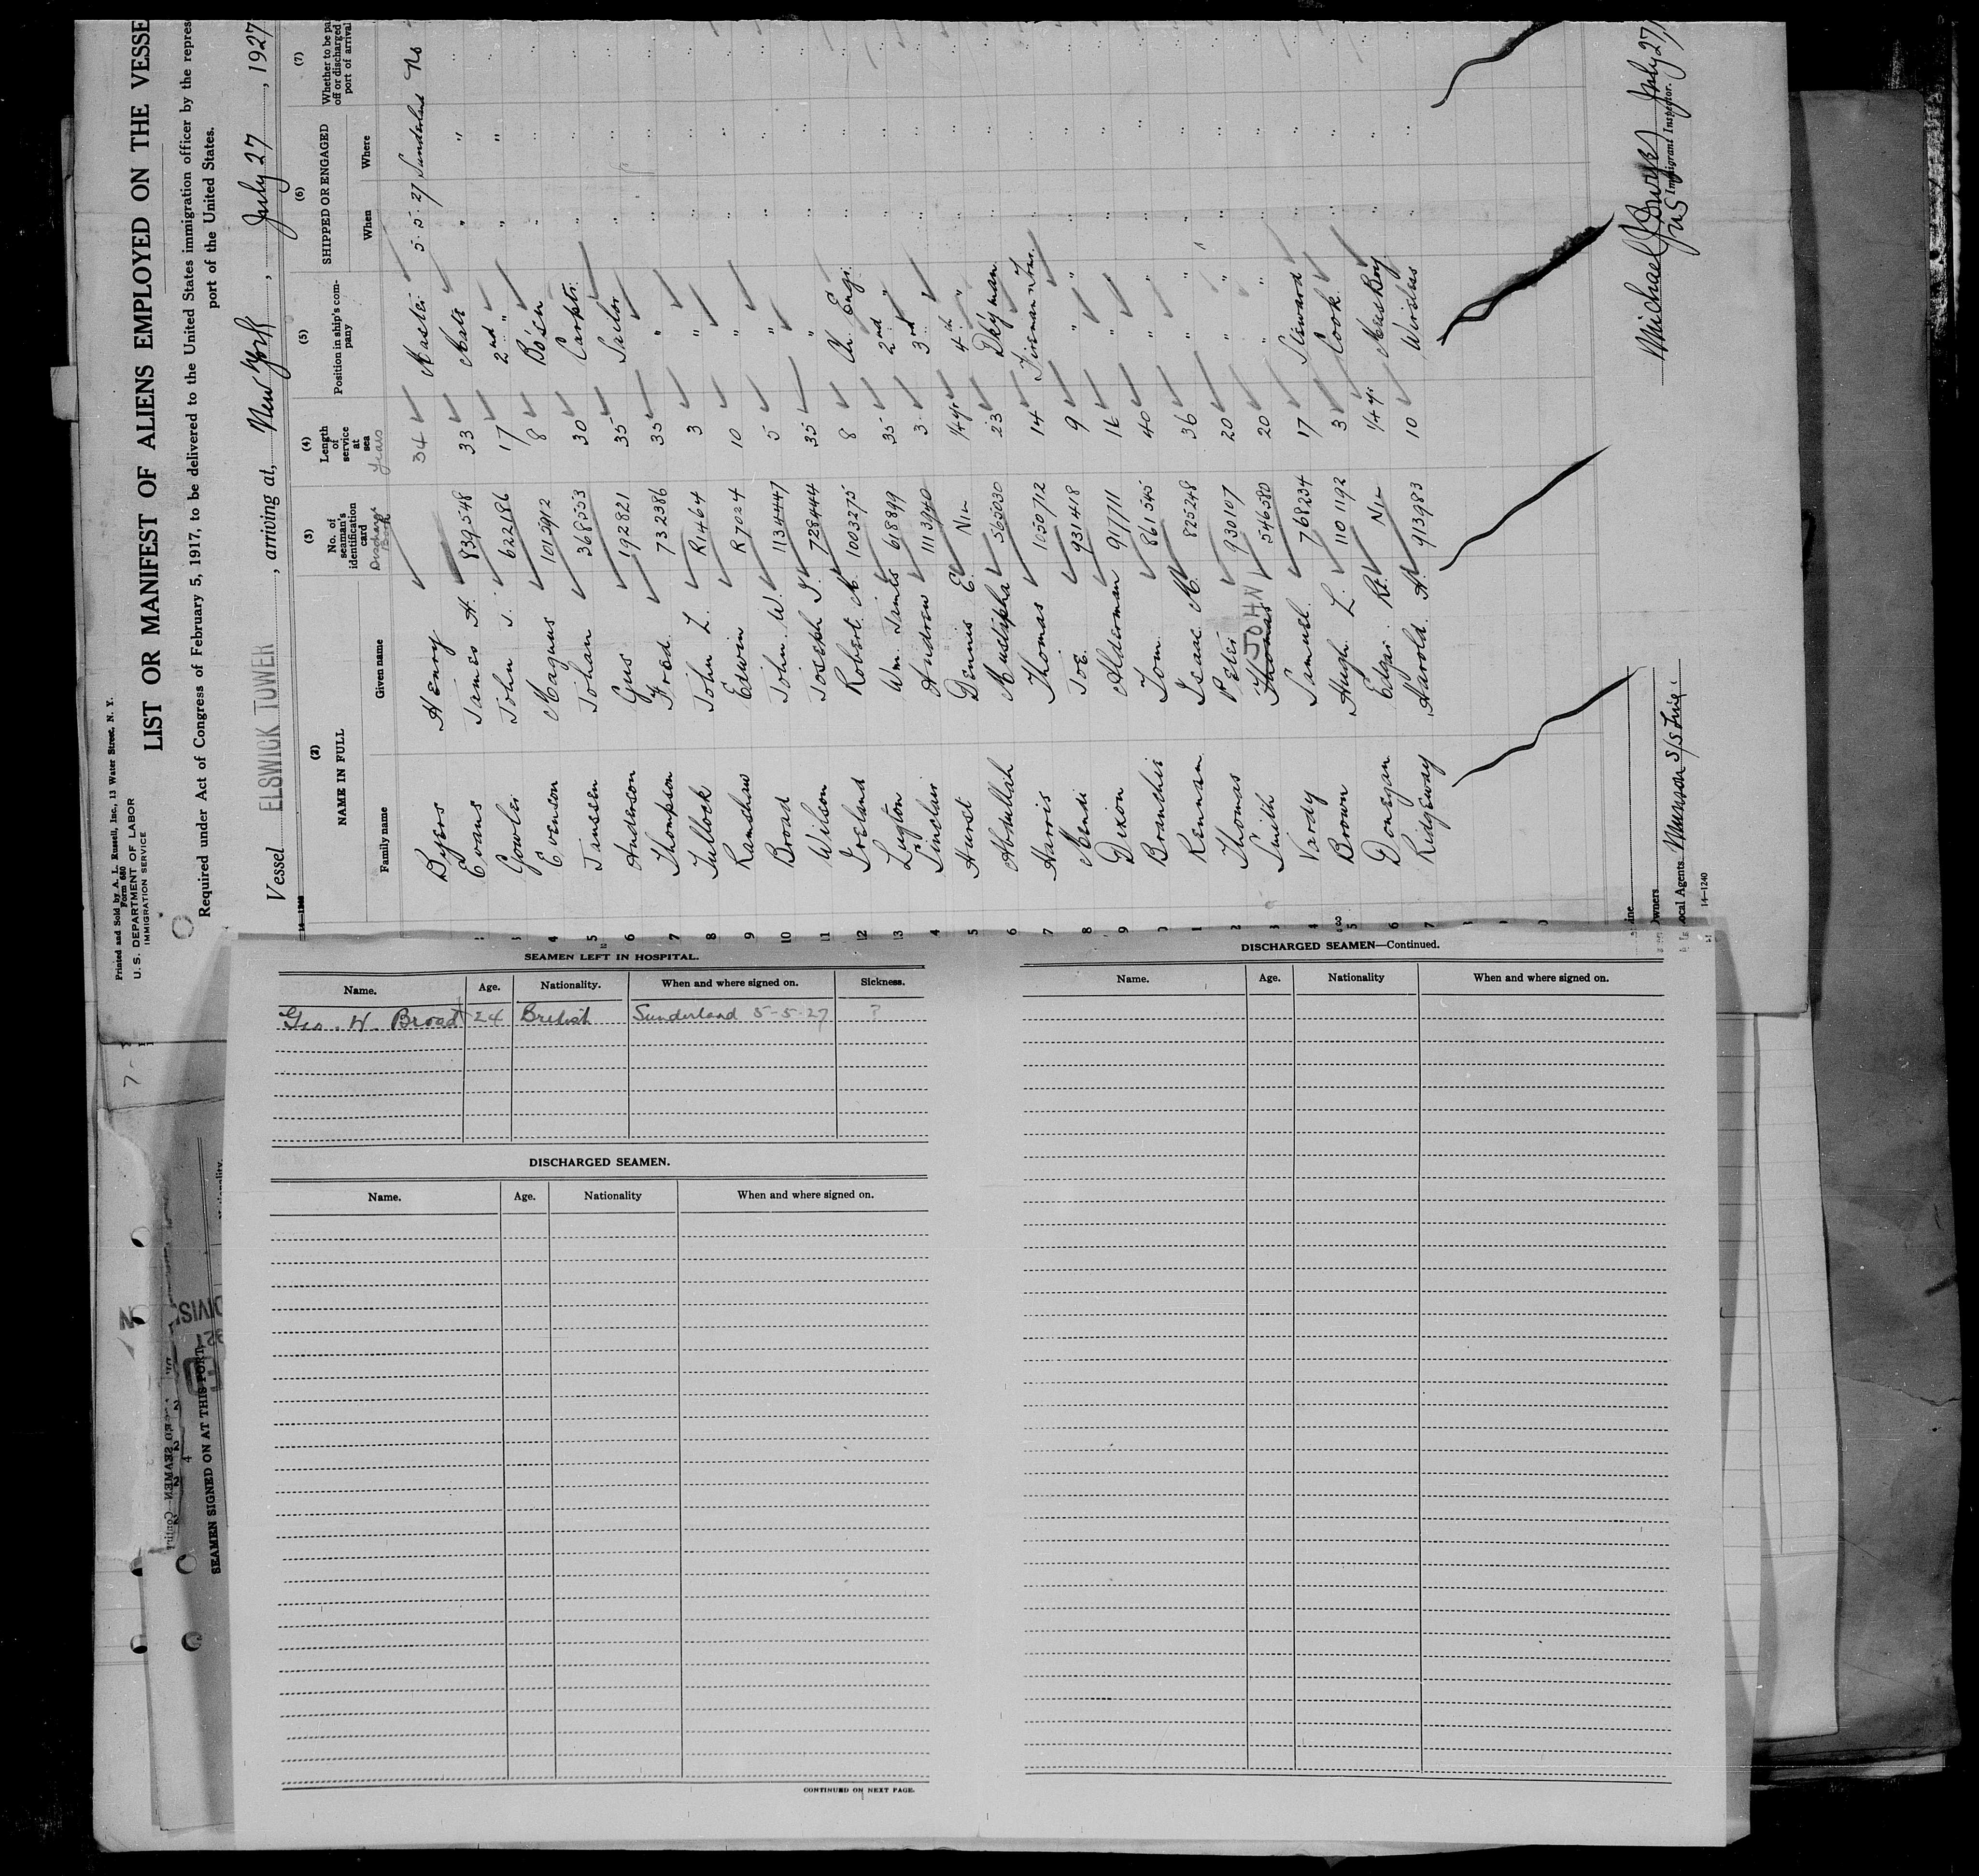 Printed and Sold by A. L. Russell, Inc., 13 Water Street, N. Y.
Form 680
U. S. DEPARTMENT OF LABOR
IMMIGRATION SERVICE
LIST OR MANIFEST OF ALIENS EMPLOYED ON THE VESSE
Required under Act of Congress of February 5, 1917, to be delivered to the United States immigration officer by the repres
port of the United States.
Vessel ELSWICK TOWER , arriving at, New York , July 27 , 1927
(2) (3) (4) (5) (6) (7)
NAME IN FULL No. of seaman's identification card Length of service at sea Position in ship's company SHIPPED OR ENGAGED Whether to be pa off or discharged port of arrival
Family name Given name Discharge Book Years When Where
Dyers Henry 34 Master 5.5.27 Sunderland No
Evans James H. 839548 33 Mate " " "
Gowler John J. 622186 17 2nd " " " "
4 Evenson Magnus 1015912 8 Bo'sn " " "
5 Jansen Johan 368553 30 Carptr. " " "
6 Anderson Gus 192821 35 Sailor " " "
7 Thompson Fred 732386 35 " " " "
8 Tullock John L. R1464 3 " " " "
9 Ramshaw Edwin R7024 10 " " " "
10 Broad John W. 1134447 5 " " " "
11 Wilson Joseph J. 728444 35 " " " "
12 Ireland Robert A. 1003275 8 Ch. Engr. " " "
13 Lugton Wm. James 618899 35 2nd " " " "
4 Sinclair Andrew 1113940 3 3rd " " " "
5 Hurst Dennis E. Nil 1/4 yr 4th " " " "
6 Abdullah Mustapha 565030 23 Dky'man " " "
7 Harris Thomas 1050712 14 Fireman & Tr. " " "
8 Mendi Joe. 931418 9 " " " "
9 Dixon Alderman 917711 16 " " " "
0 Branchis Tom 861545 40 " " " "
1 Rennan Isaac M. 825248 36 " " " "
2 Thomas Peter 930107 20 " " " "
3 Smith Thomas JOHN 546580 20 " " " "
4 Vardy Samuel 768234 17 Steward " " "
5 Brown Hugh L. 1101192 3 Cook " " "
6 Donegan Edgar Rt. Nil 1/4 yr Mess Boy " " "
7 Ridgeway Harold A. 913983 10 Wireless " " "
Michael J Dwyer July 27,
US Immigrant Inspector.
ine
wners
ocal Agents Munson S/S Line.
14—1240
SEAMEN LEFT IN HOSPITAL.
Name. Age. Nationality. When and where signed on. Sickness.
Geo. W. Broad 24 British Sunderland 5-5-27 ?
DISCHARGED SEAMEN.
Name. Age. Nationality When and where signed on.
CONTINUED ON NEXT PAGE.
DISCHARGED SEAMEN—Continued.
Name. Age. Nationality When and where signed on.
SEAMEN SIGNED ON AT THIS PORT